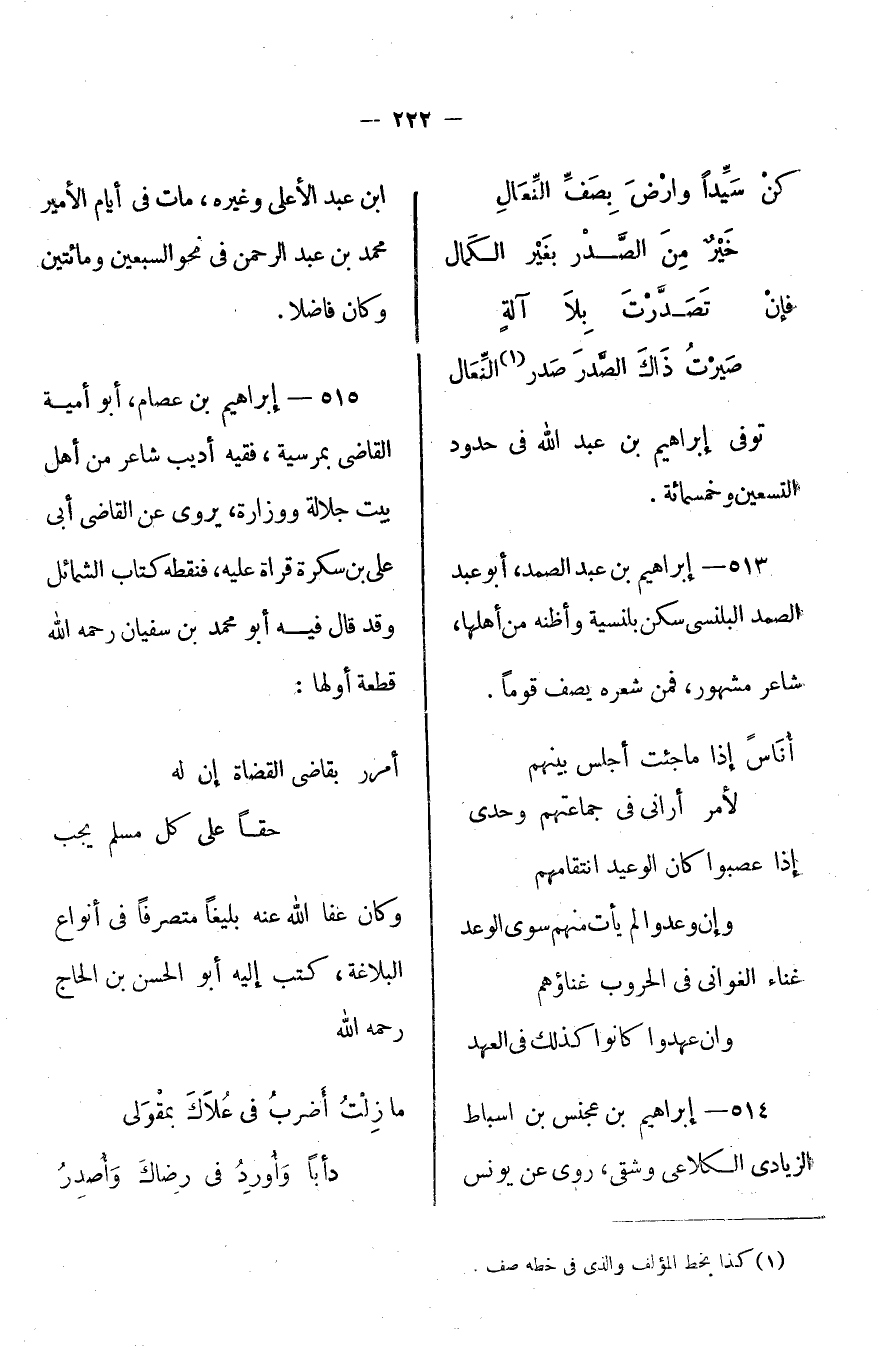 — ٢٢٢ —
كنْ سَيِّداً وارْضَ بِصَفِّ النِّعَالِ
خَيْرٌ مِنَ الصَّدْر بغَيْر الكَمال
فإنْ تَصَدَّرْتَ بِلاَ آلةٍ
صَيرْتُ ذَاكَ الصَّدرَ صَدر (١) النِّعَال
توفى إبراهيم بن عبد الله فى حدود
التسعين وخمسمائة .
٥١٣ — إبراهيم بن عبد الصمد، أبو عبد
الصمد البلنسى سكن بلنسية وأظنه من أهلها،
شاعر مشهور، فمن شعره يصف قوماً .
أُنَاسً إذا ماجئت أجلس بينهم
لأمر أرانى فى جماعتهم وحدى
إذا عصبوا كان الوعيد انتقامهم
وإن وعدوا لم يأت منهم سوى الوعد
غناء الغوانى فى الحروب غناؤهم
وان عهدوا كانوا كذلك فى العهد
٥١٤ — إبراهيم بن عجنس بن اسباط
الزيادى الكلاعى وشقى، روى عن يونس
(١) كذا بخط المؤلف والذى فى خطه صف .
ابن عبد الأعلى وغيره، مات فى أيام الأمير
محمد بن عبد الرحمن فى نحو السبعين ومائتين
وكان فاضلا .
٥١٥ — إبراهيم بن عصام، أبو أمية
القاضى بمرسية، فقيه أديب شاعر من أهل
بيت جلالة ووزارة، يروى عن القاضى أبى
على بن سكرة قراة عليه، فنقطه كتاب الشمائل
وقد قال فيه أبو محمد بن سفيان رحمه الله
قطعة أولها :
أمرر بقاضى القضاة إن له
حقاً على كل مسلم يجب
وكان عفا الله عنه بليغاً متصرفاً فى أنواع
البلاغة، كتب إليه أبو الحسن بن الحاج
رحمه الله
ما زِلْتُ أَضربُ فى عُلاَكَ بمقْوَلى
دأباً وَأُوردُ فى رِضاكَ وَأُصدِرُ